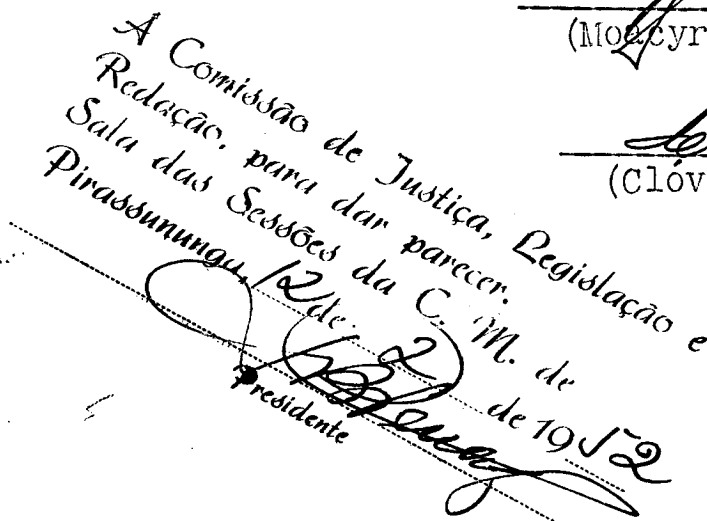 (Moacyr
(Clóv
Á Comissão de Justiça, Legislação e
Redação, para dar parecer.
Sala das Sessões da C. M. de
Pirassununga, 12 de 2 de 1952
Presidente